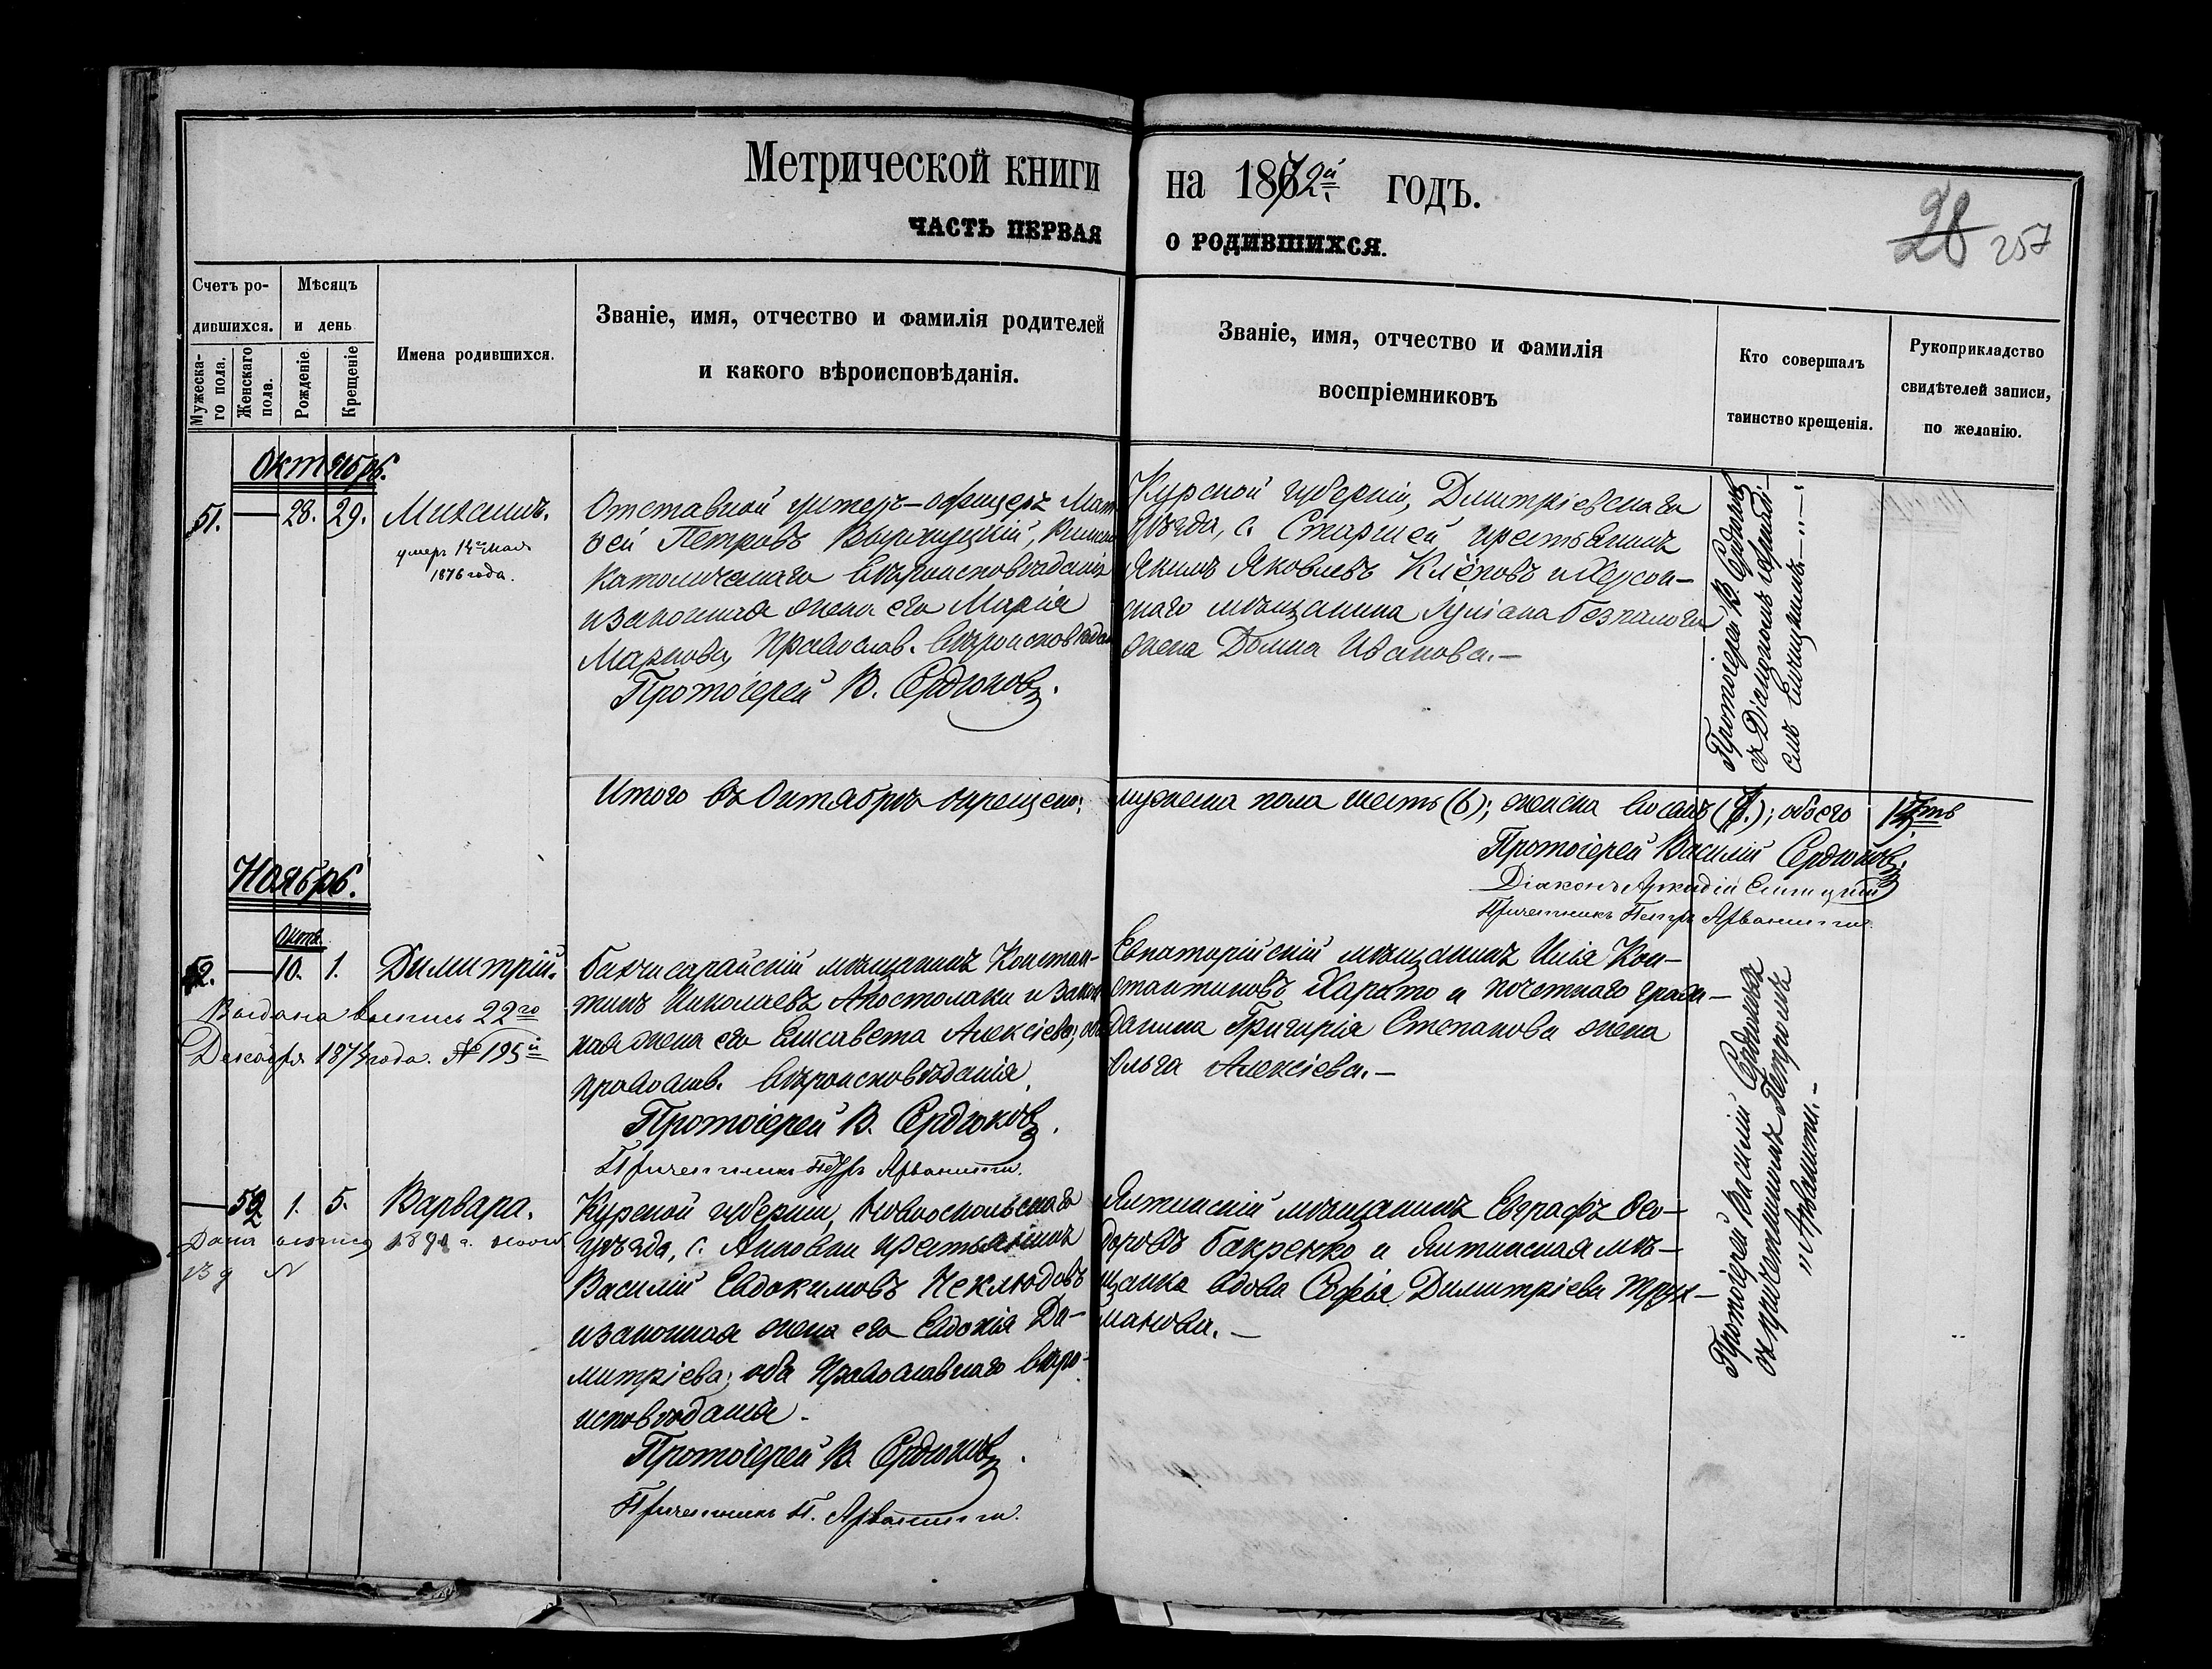 Метрической книги на 1872й годъ.
ЧАСТЬ ПЕРВАЯ О РОДИВШИХСЯ.
28 257
Счетъ ро-
дившихся.
Мужеска-
го пола.
Женскаго
пола.
Мѣсяцъ
и день
Рожденіе.
Крещеніе
Имена родившихся.
Званіе, имя, отчество и фамилія родителей
и какого вѣроисповѣданія.
Званіе, имя, отчество и фамилія
воспріемниковъ
Кто совершалъ
таинство крещенія.
Рукоприкладство
свидѣтелей записи,
по желанію.
Октябрь.
51. — 28. 29. Михаилъ.
умеръ 14го Мая
1876 года.
Отставной унтеръ-офицеръ Мат
вей Петровъ Римско
католическаго вѣроисповѣданія
и законная жена его Марія
Маркова, Православ. вѣроисповѣдан
Протоіерей В. Сердюковъ.
Курской губерніи, Дмитріевскаго
уѣзда, с. Старшей крестьянинъ
Якимъ Яковлевъ Клёповъ и Херсон-
скаго мѣщанина
жена Домна Иванова.—
Протоіерей В. Сердюковъ
съ Діакономъ Аркадіе-
емъ Елинскимъ.—
Итого въ Октябрѣ окрещено: мужеска пола шесть (6); женска восемь (8.); обоего 14ть
Протоіерей Василій Сердюковъ.
Діаконъ Аркадій
Причетникъ Петръ Арванити.
Ноябрь.
Октя.
52. — 10. 1. Димитрій.
Выдана выпись 22го
Декабря 1874 года. № 195й
Бахчисарайскій мѣщанинъ Констан-
тинъ Николаевъ Апостолаки и закон
ная жена его Елисавета Алексіева, оба
православ. вѣроисповѣданія.
Протоіерей В. Сердюковъ.
Причетникъ Петръ Арванити.
Евпаторійскій мѣщанинъ Илія Кон-
стантиновъ Харито и почетнаго граж-
данина Григорія Степанова жена
Ольга Алексіева.—
Протоіерей Василій Сердюковъ
съ причетникомъ Петромъ
Арванити.—
— 52. 1. 5. Варвара.
Дана выпись 1891 г.
Курской губерніи, Новооскольскаго
уѣзда, с. крестьянинъ
Василій Евдокимовъ Неклюдовъ
и законная жена его Евдокія Ди-
митріева; оба Православнаго вѣро-
исповѣданія.
Протоіерей В. Сердюковъ.
Причетникъ П. Арванити.
Ялтинскій мѣщанинъ Евграфъ Ѳео-
доровъ Бакренко и Ялтинская мѣ-
щанка вдова Софія Димитріева Трух-
манова.—